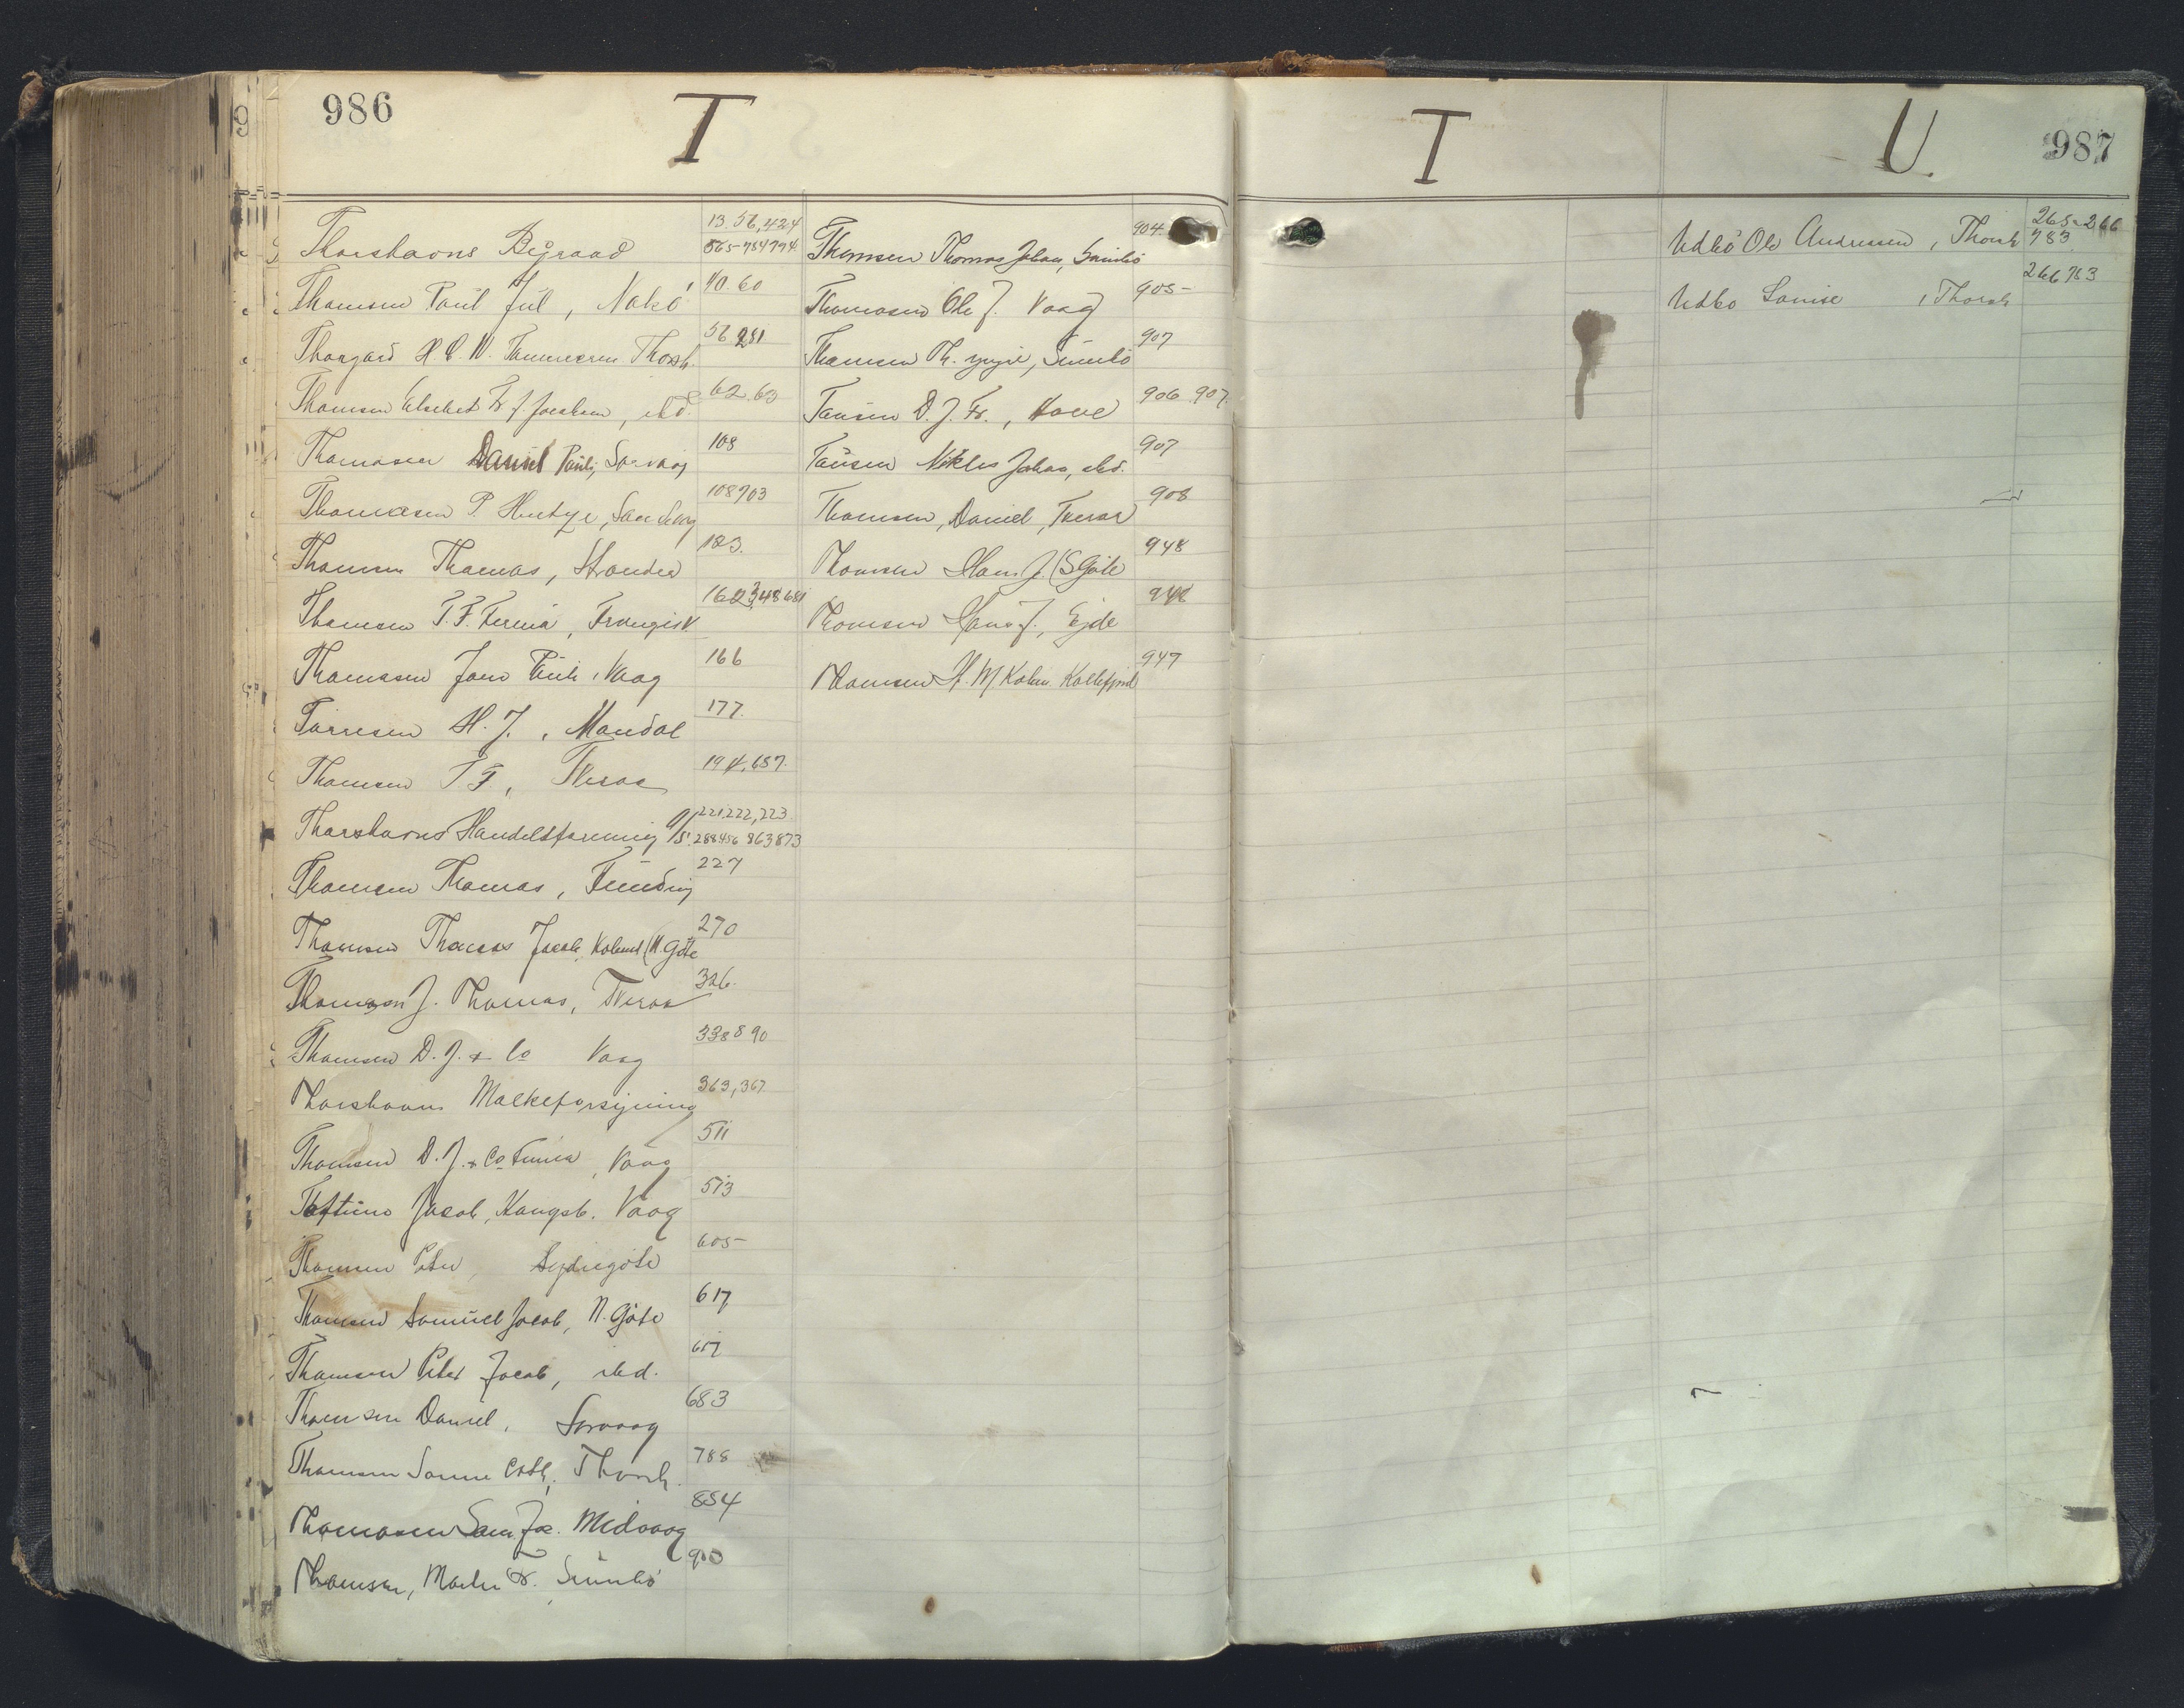 986
T
Thorshavns Byraad 13. 56, 424
565-754 794
Thomsen Paul Jul, Nolsö 40. 60
Thorgard H C W. Thorsh. 56 281
Thomsen Elsebet Fr. J. Joensen, ibd. 62. 63
Thomasen Daniel Pauli, Sorvaag 108
Thomasen P. Sandevaag 108 703
Thomsen Thomas, Strander 123.
Thomsen T. F. Firma, Frangisk 348 681
Thomasen Jom Pauli, Vaag 166
Törresen H. J., Mandal 177.
Thomsen T F, Tveraa 194, 687.
Thorshavns Handelsforening A/S 221, 222, 223
288 456 863 873
Thomsen Thomas, Funding 227
Thomsen Thomas Jacob, Kobmd (N Göte 270
Thomsen J. Thomas, Tveraa 326.
Thomsen D. J. & Co Vaag 338 890
Thorshavns Mælkeforsyning 363, 367
Thomsen D. J. & Co Firma, Vaag 511
Toftum Jacob, Kongsb. Vaag 513
Thomsen Peter, Sydregöte 605
Thomsen Samuel Jacob, N. Göte 617
Thomsen Peter Jacob, ibd. 617
Thomsen Daniel, Sorvaag 683
Thomsen Sanne Cath, Thorsh. 788
Thomasen Sam. Jac. Midvaag 854
Thomsen, Martin Fr. Sumbö 903
Thomsen Thomas Johan, Sumbö 904
Thomasen Ole J. Vaag 905
Thomsen Th. yngre, Sumbö 907
Tausen D. J. Fr., Hove 906 907.
Tausen Niklas Johan, ibd. 907
Thomsen, Daniel, Tveraa 908
Thomsen Hans J. (S Göte 948
Thomsen Hans J., Ejde 948
Thomsen H. M Kobm. Kollefjord 947
T
U.
987
Udbö Ole Andreasen, Thorsh 265-266
783
Udbö Louise, Thorsh 266 783